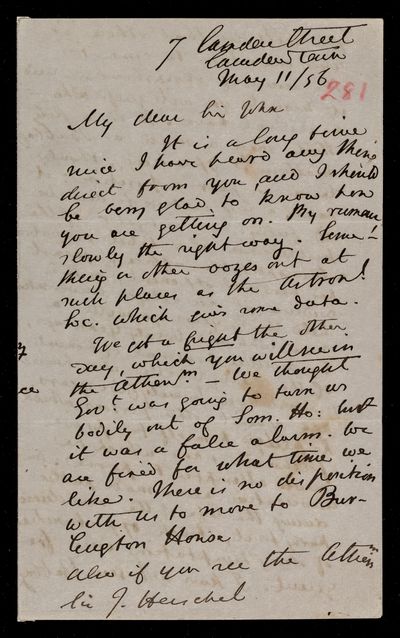 7 Camden Street
Camden Town
May 11/56
281
My dear Sir John
It is a long time
since I have heard any thing
direct from you, and I should
be very glad to know how
you are getting on. By rumour
slowly the right way. Some-
thing or other oozes out at
such places as the Astron!
Soc. which gives some data.
We got a fright the other
day, which you will see in
the Athenm – We thought
Govt. was going to turn us
bodily out of Som. Ho: but
it was a false alarm. We
are fixed for what time we
like. There is no disposition
with us to move to Bur-
lington House
also if you see the Athenm
Sir J. Herschel